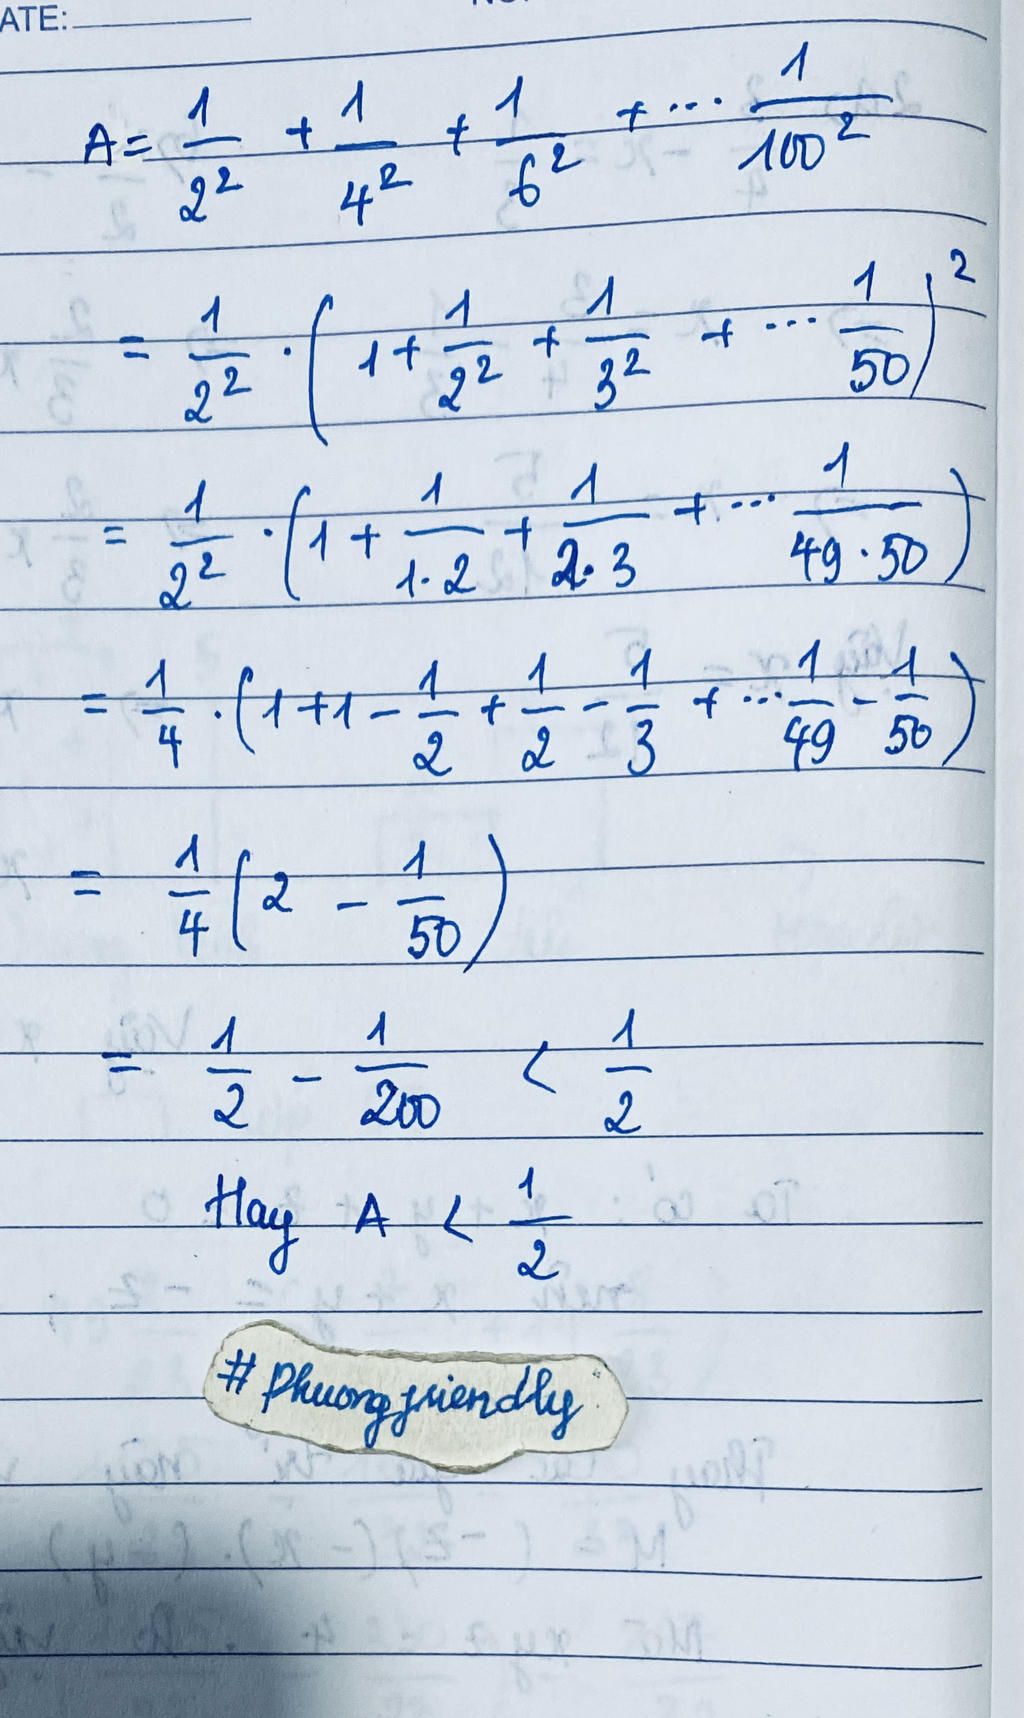 ATE:
A = 1/2² + 1/4² + 1/6² + ... 1/100²
= 1/2² . ( 1 + 1/2² + 1/3² + ... 1/50 )²
= 1/2² . ( 1 + 1/1.2 + 1/2.3 + ... 1/49.50 )
= 1/4 . ( 1 + 1 - 1/2 + 1/2 - 1/3 + ... 1/49 - 1/50 )
= 1/4 ( 2 - 1/50 )
= 1/2 - 1/200 < 1/2
Hay A < 1/2
# phuongfriendly